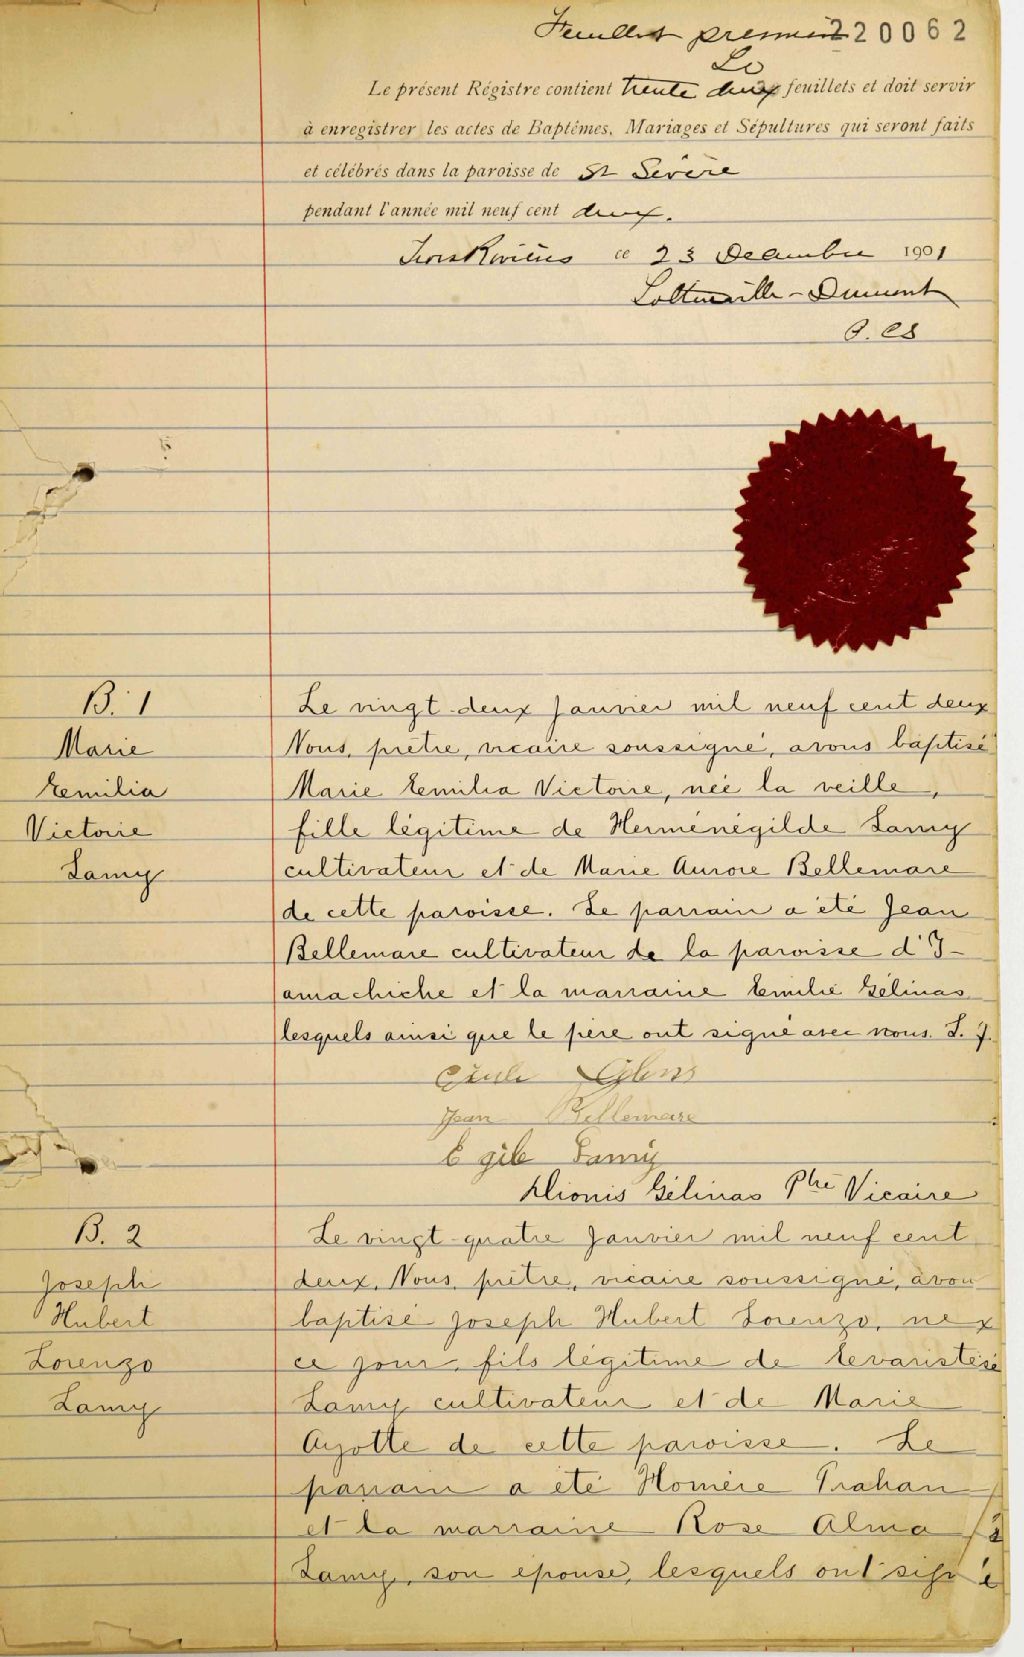 Feuillet premier 220062
Le présent Régistre contient trente deux feuillets et doit servir
à enregistrer les actes de Baptêmes, Mariages et Sépultures qui seront faits
et célébrés dans la paroisse de St Sévère
pendant l'année mil neuf cent deux.
Trois Rivières ce 23 Decembre 1901
Lottinville - Dumont
P. CS
B. 1
Marie
Emilia
Victoire
Lamy
Le vingt-deux Janvier mil neuf cent deux
Nous, prêtre, vicaire soussigné, avons baptisé
Marie Emilia Victoire, née la veille,
fille légitime de Herménégilde Lamy
cultivateur et de Marie Aurore Bellemare
de cette paroisse. Le parrain a été Jean
Bellemare cultivateur de la paroisse d'Y-
amachiche et la marraine Emilie Gélinas
lesquels ainsi que le père ont signé avec nous. L. f.
Jean Bellemare
E gile Lamy
Dionis Gélinas Ptre Vicaire
B. 2
Joseph
Hubert
Lorenzo
Lamy
Le vingt-quatre Janvier mil neuf cent
deux, Nous, prêtre, vicaire soussigné, avon
baptisé Joseph Hubert Lorenzo, né x
ce jour, fils légitime de Evariste
Lamy cultivateur et de Marie
Ayotte de cette paroisse. Le
parrain a été Homère Trahan
et la marraine Rose Alma
Lamy, son épouse, lesquels ont signé